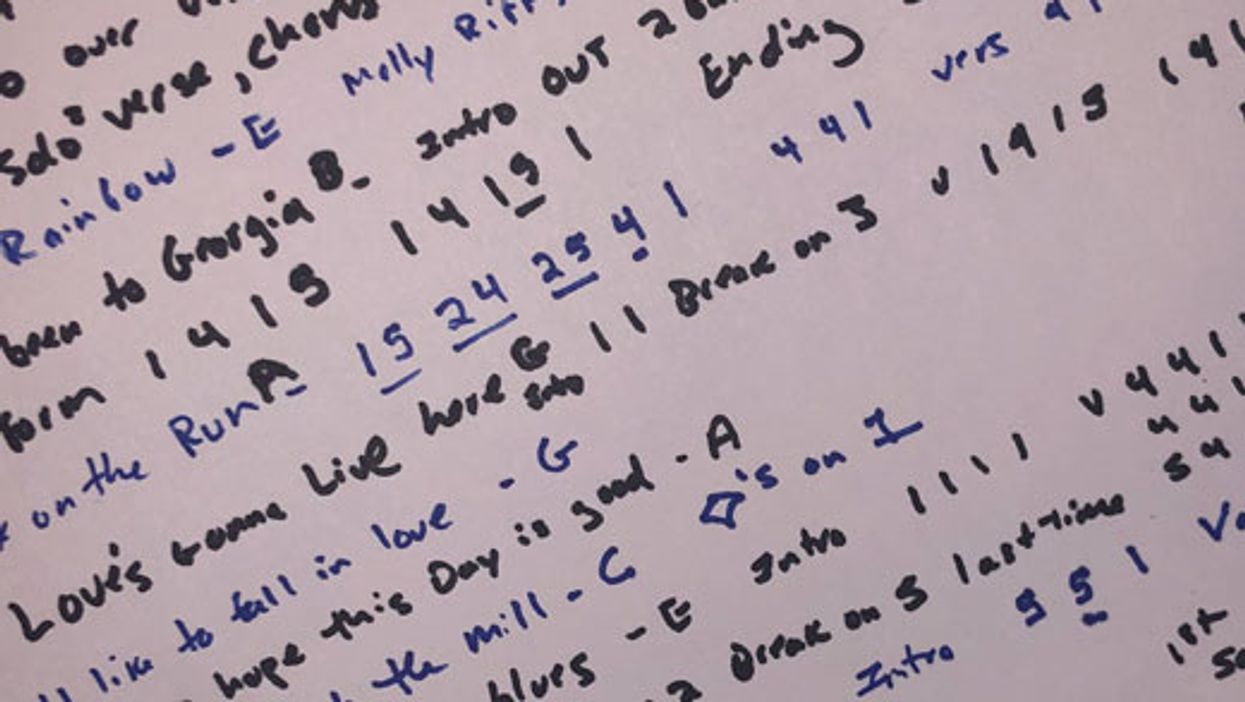 over
Solo verse, chorus
Rainbow - E Melly Riff
been to Georgia B - Intro OUT 2
form 1 4 1 5 1 4 1 5 1 Ending
on the Run A - 1 5 2 4 2 5 4 1 4 4 1 vers 4 1
Love's Gonna Live here G Solo 1 1 Break on 5 v 1 4 1 5 1 4 1
like to fall in love - G
hope this Day is good - A
the mill - C ◇'s on 1
blues - E Intro 1 1 1 1 v 4 4 1
4 4 1
2 Break on 5 last time 5 4
Intro 5 5 1
1st